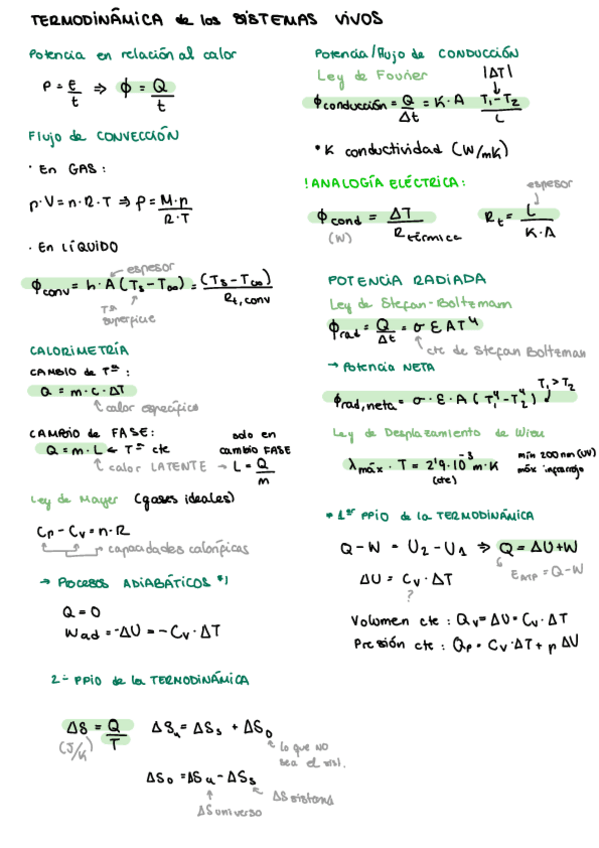 TERMODINÁMICA de los SISTEMAS VIVOS
Potencia en relación al calor
P = E/t ⇒ ϕ = Q/t
Flujo de CONVECCIÓN
· En GAS:
p·V = n·R·T ⇒ ρ = M·p/R·T
· En LÍQUIDO
espesor
ϕconv = h·A (Ts - T∞) = (Ts - T∞)/Rt,conv
Tª superficie
CALORIMETRÍA
CAMBIO de Tª:
Q = m·c·ΔT
calor específico
CAMBIO de FASE: solo en cambio FASE
Q = m·L ← Tª cte
calor LATENTE → L = Q/m
Ley de Mayer (gases ideales)
Cp - Cv = n·R
capacidades caloríficas
→ POCESOS ADIABÁTICOS *1
Q = 0
Wad = -ΔU = - Cv·ΔT
2º PPIO de la TERMODINÁMICA
ΔS = Q/T ΔSu = ΔSs + ΔSo
(J/K) lo que NO sea el sist.
ΔSo = ΔSu - ΔSs
ΔSuniverso ΔSsistema
Potencia/flujo de CONDUCCIÓN
Ley de Fourier |ΔT|
ϕconducción = Q/Δt = K·A T1-T2/L
* K conductividad (W/mK)
! ANALOGÍA ELÉCTRICA: espesor
ϕcond = ΔT/Rtérmica Rt = L/K·A
(W)
POTENCIA RADIADA
Ley de Stefan-Boltzmann
ϕrad = Q/Δt = σ ε A T⁴
cte de Stefan Boltzman
→ Potencia NETA
T1 > T2
ϕrad,neta = σ·ε·A (T1⁴ - T2⁴)
Ley de Desplazamiento de Wien
λmáx · T = 2'9·10⁻³ m·K
(cte)
mín 200nm (UV)
máx infrarrojo
* 1er PPIO de la TERMODINÁMICA
Q - W = U2 - U1 ⇒ Q = ΔU+W
ΔU = Cv·ΔT
?
Volumen cte: Qv = ΔU = Cv·ΔT
Presión cte: Qp = Cv·ΔT + p ΔU